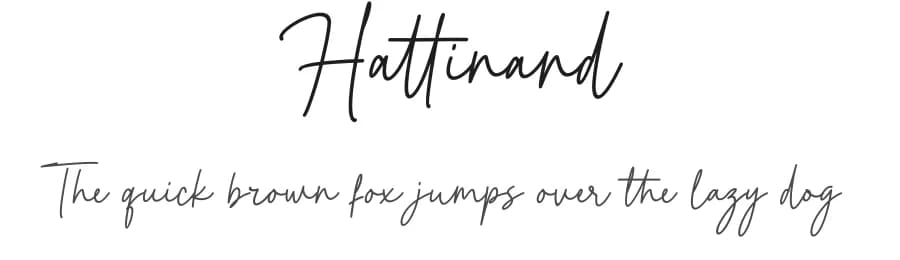 Hattinand
The quick brown fox jumps over the lazy dog